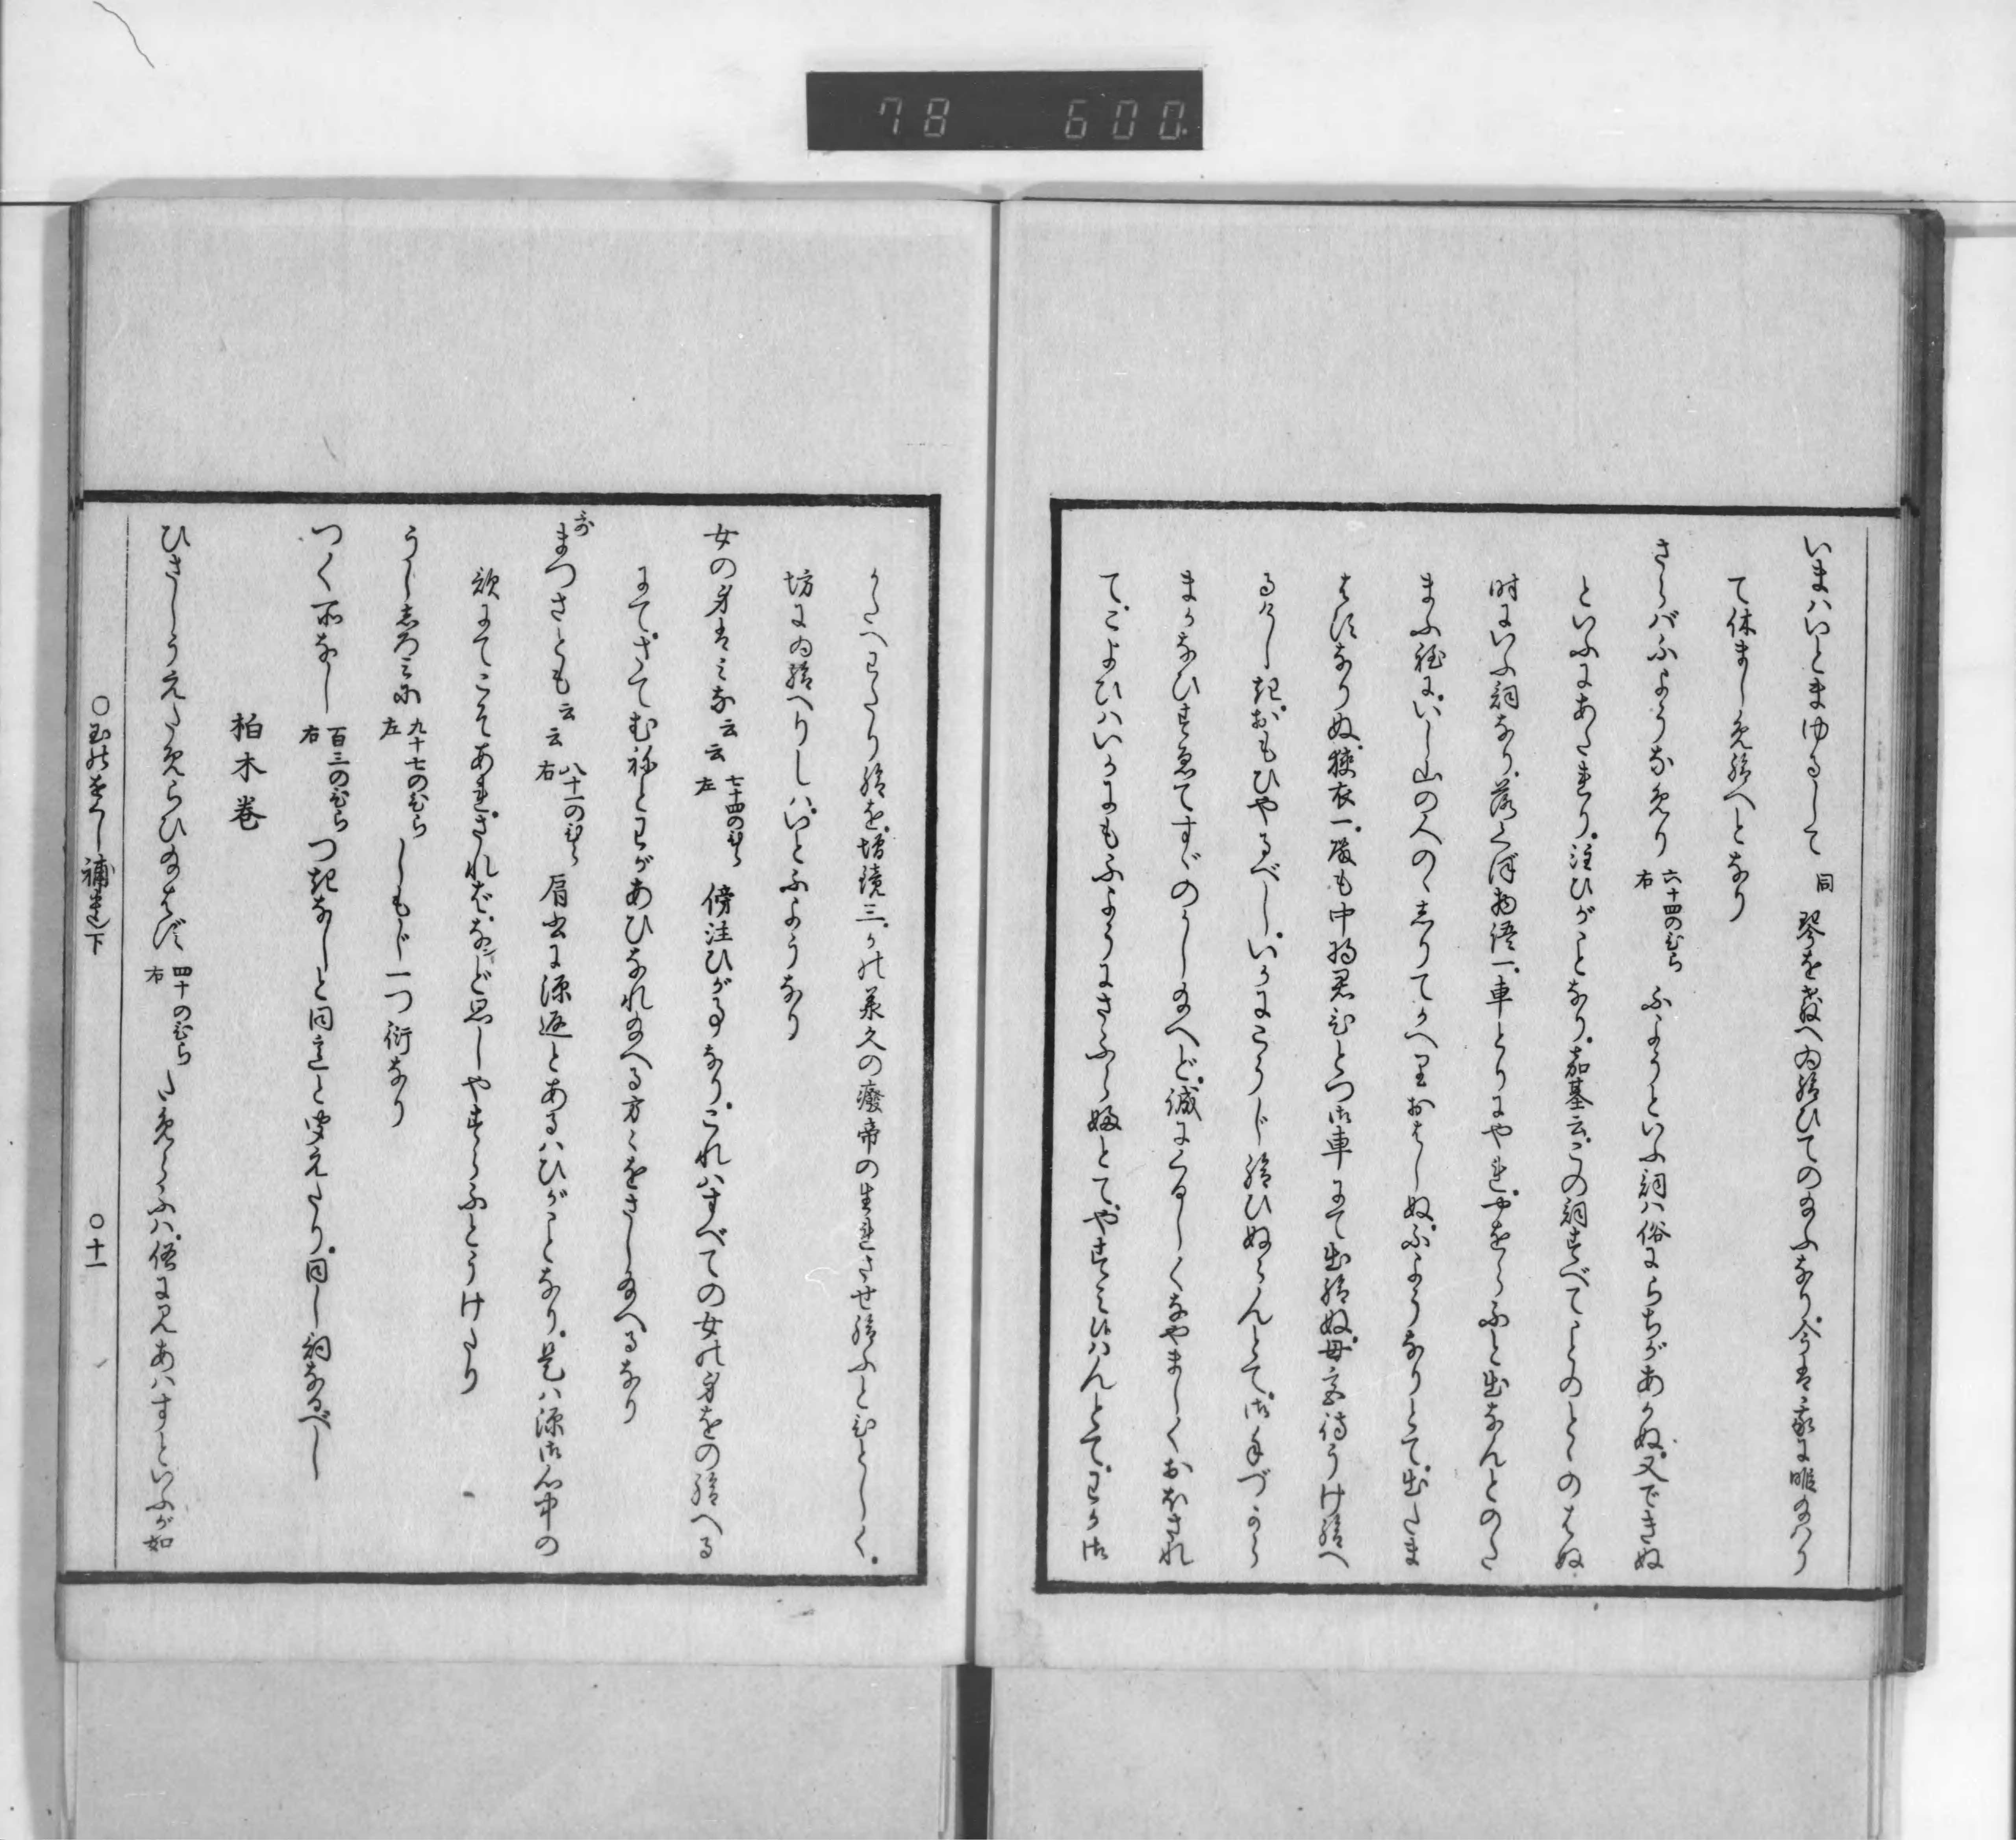 78 600
いまハいとまゆるして 同 琴を教へ為給ひてのまふなり。今は我に暇給ハり
て休ましめ給へとなり
さらバふようなめり 六十四のひら右 ふようといふ詞ハ俗にらちがあかぬ。又できぬ
といふにあたれり。注ひがことなり。嘉基云。この詞すべてことのとゝのはぬ
時にいふ詞なり。落くぼ物語一。車とりにやれ。やをらふと出なんとのた
まふ程に。いし山の人のゝしりてかへりおはしぬ。ふようなりとて。出たま
はずなりぬ。狭衣一。殿も中将君ひとつ御車にて出給ぬ。母宮待うけ給へ
るけし起。おもひやるべし。いかにこうじ給ひぬらんとて。御手づから
まかなひすゑてすゞのかし給へど。誠にくるしくなやましくおぼされ
て。こよひハいかにもふようにさふらぬとて。やすミ候ハんとて。わか御
かたへわたり給を。増鏡三。かの承久の癈帝の生れさせ給ふとひとしく。
坊にゐ給へりしハ。いとふようなり
女の身はミな云云 七十四のひら左 傍注ひがことなり。これハすべての女の身をの給へる
にて。さてむねとわがあひなれ給へる方ゝをさし給へるなり
まつさとも云云 八十一のひら右 肩書に源返とあるハひがことなり。是ハ源御心中の
歌にてこそあれ。されば。などおしやすらふとうけたり
うしろミに 九十七のひら左 しもじ一つ衍なり
つく所なし 百三のひら右 つ起なしと同意と聞えたり。同し詞なるべし
柏木巻
ひさしうえためらひ給はず 四十のひら右 ためらふハ。俗に見あハすといふが如
○玉の をくし補遺下 ○十一